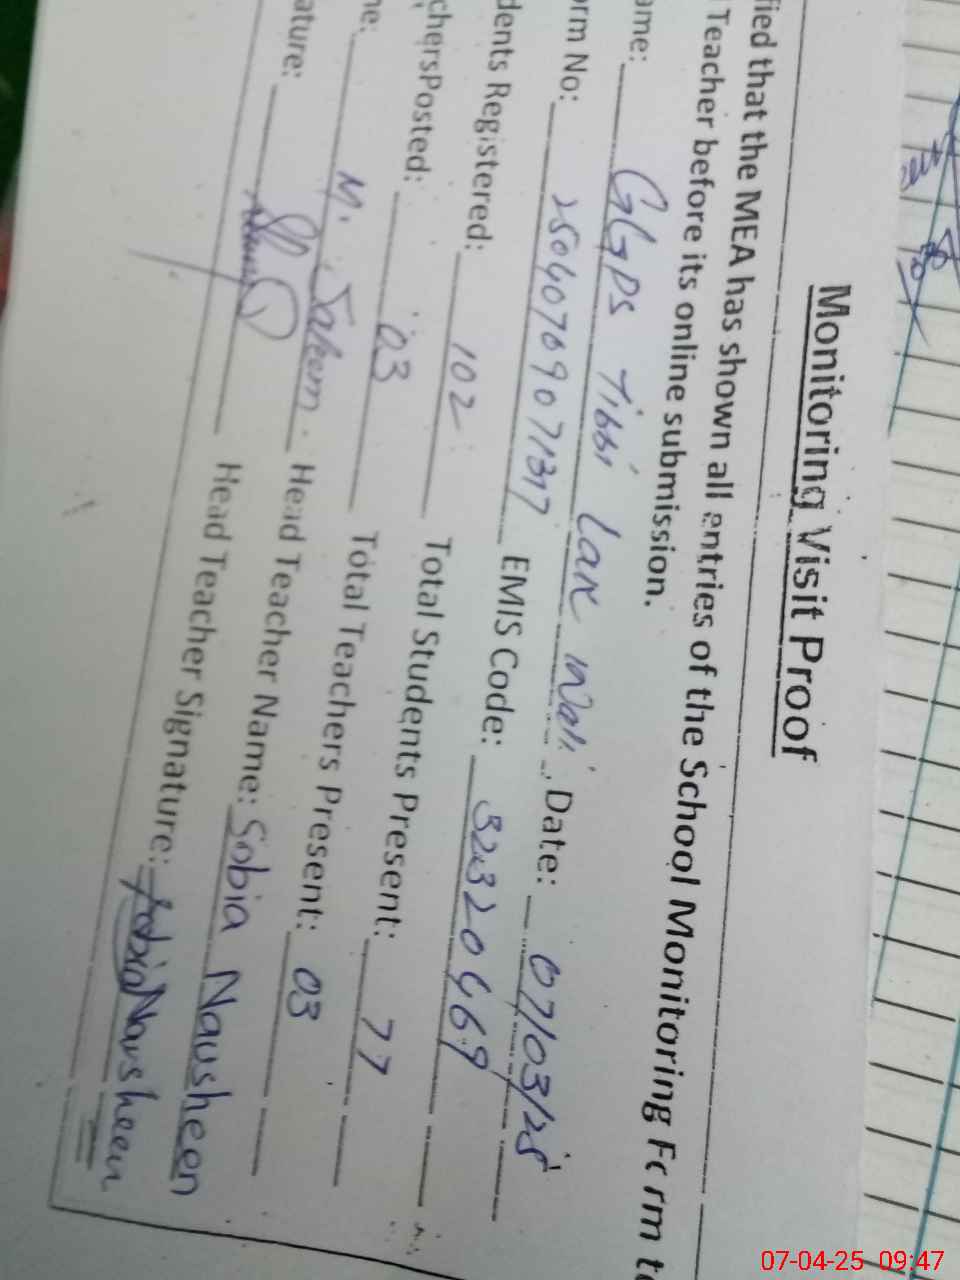 Monitoring Visit Proof
fied that the MEA has shown all entries of the School Monitoring Form to
Teacher before its online submission.
ame: GGPS Tibbi Lar Wali Date: 07/03/25
orm No: EMIS Code: 32320469
dents Registered: 102 Total Students Present: 77
chersPosted: 03 Total Teachers Present: 03
ne: M. Saleem. Head Teacher Name: Sobia Nausheen
ature: Head Teacher Signature: Sobia Nausheen
07-04-25 09:47